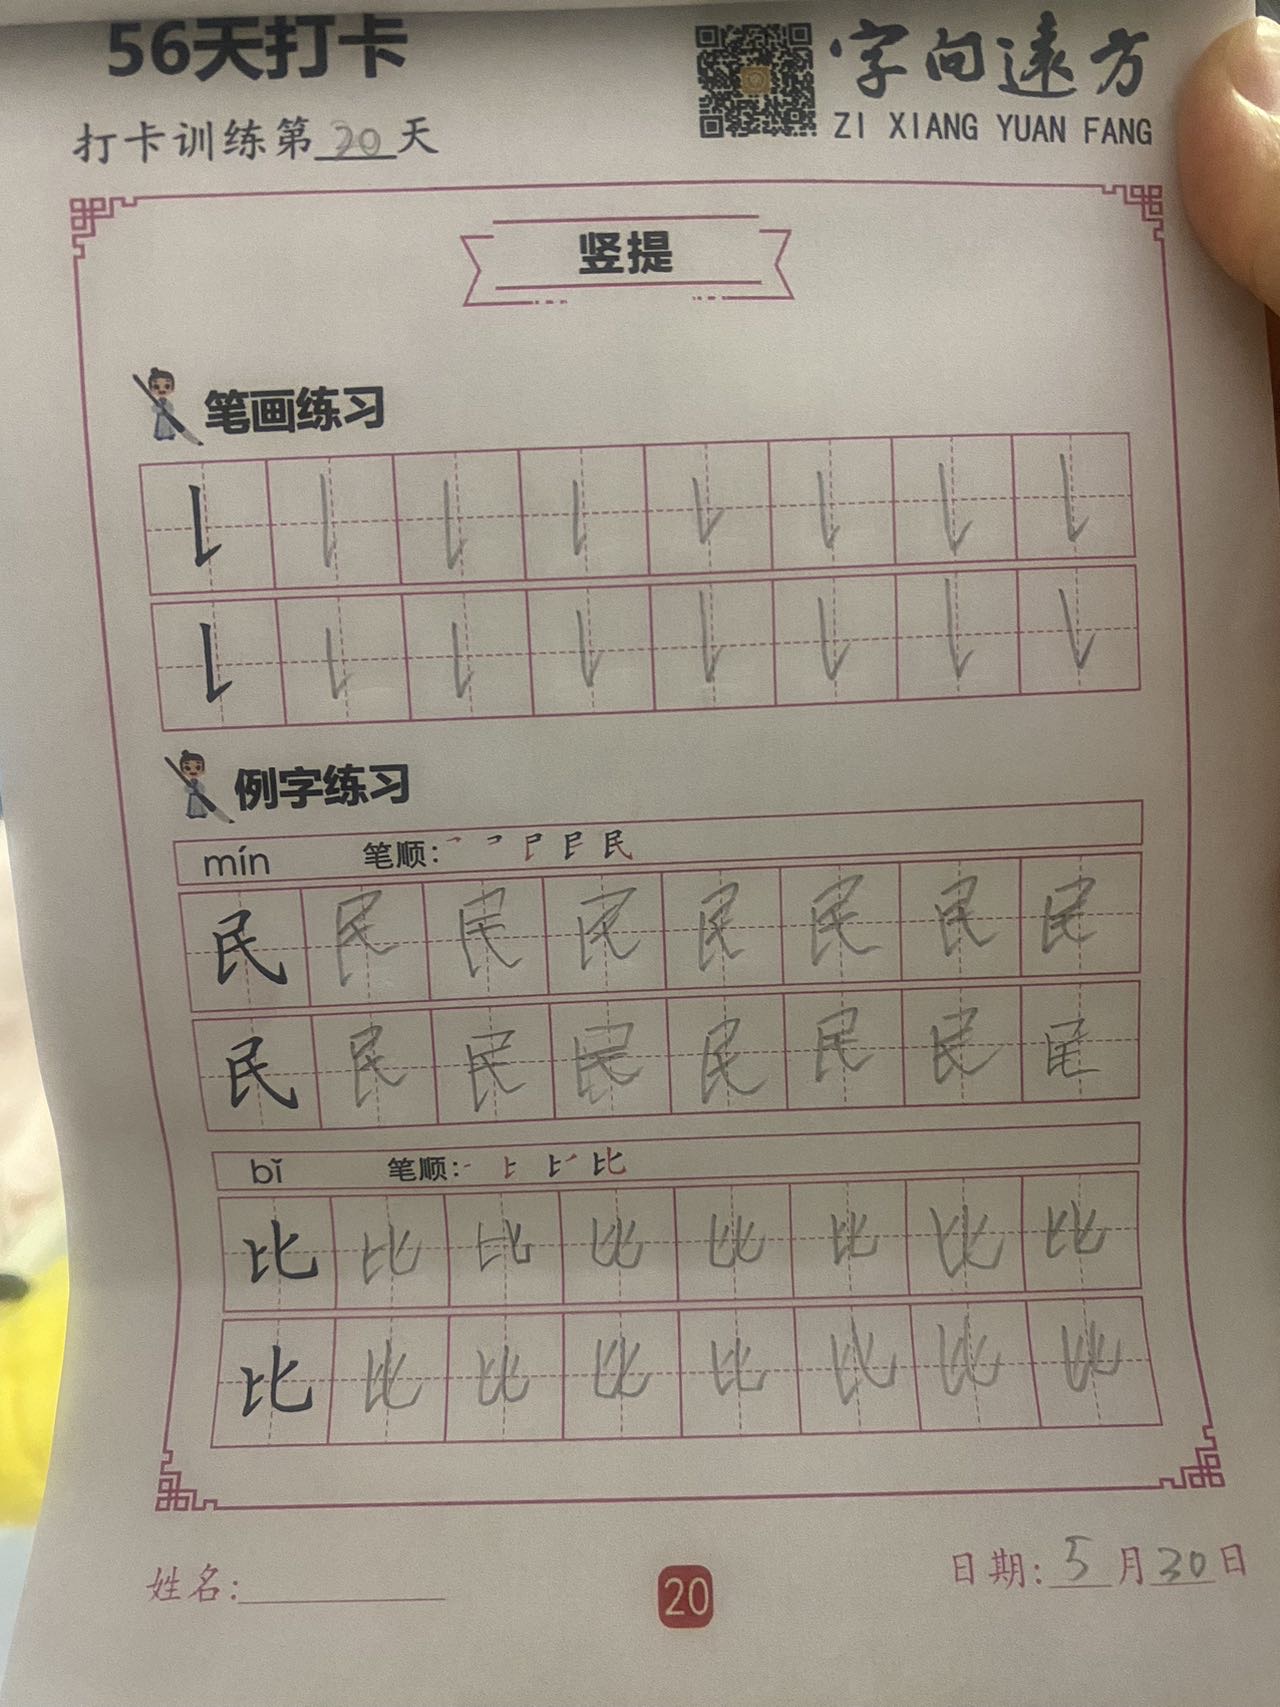 56天打卡
字向遠方
打卡训练第20天
ZI XIANG YUAN FANG
竖提
笔画练习
例字练习
mín 笔顺:
民 民 民 民 民 民 民 民
民 民 民 民 民 民 民 民
bǐ 笔顺:
比 比 比 比 比 比 比 比
比 比 比 比 比 比 比 比
姓名:
20
日期: 5月30日